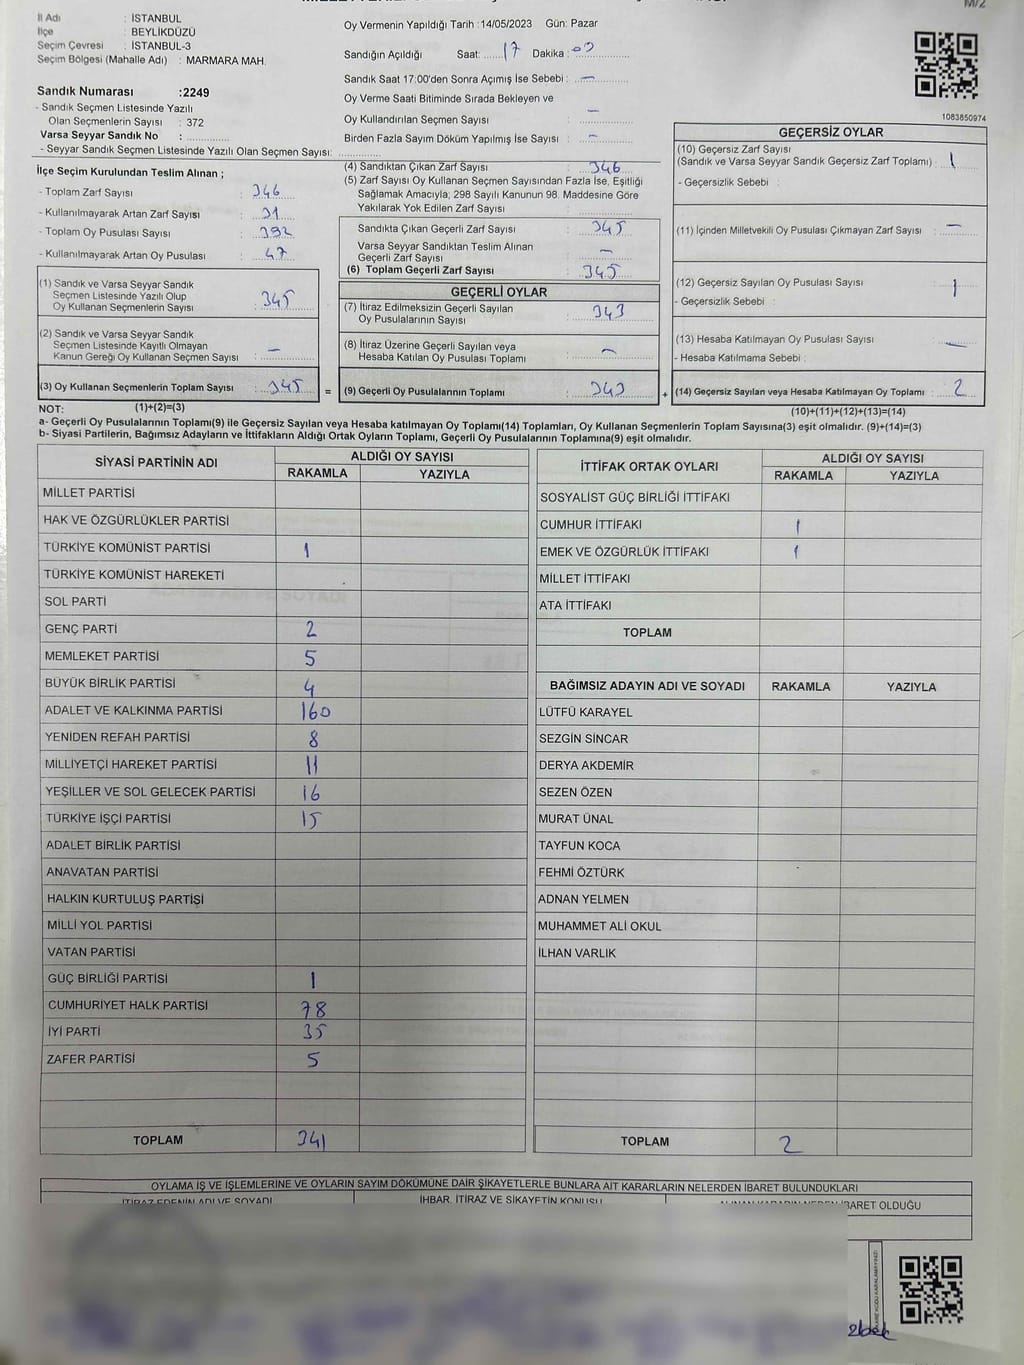 M/2
İl Adı : İSTANBUL
İlçe : BEYLİKDÜZÜ
Seçim Çevresi : İSTANBUL-3
Seçim Bölgesi (Mahalle Adı) : MARMARA MAH.
Sandık Numarası :2249
- Sandık Seçmen Listesinde Yazılı
Olan Seçmenlerin Sayısı : 372
Varsa Seyyar Sandık No :
- Seyyar Sandık Seçmen Listesinde Yazılı Olan Seçmen Sayısı:
İlçe Seçim Kurulundan Teslim Alınan ;
- Toplam Zarf Sayısı : 346
- Kullanılmayarak Artan Zarf Sayısı :
- Toplam Oy Pusulası Sayısı : 392
- Kullanılmayarak Artan Oy Pusulası : 47
(1) Sandık ve Varsa Seyyar Sandık
Seçmen Listesinde Yazılı Olup
Oy Kullanan Seçmenlerin Sayısı : 345
(2) Sandık ve Varsa Seyyar Sandık
Seçmen Listesinde Kayıtlı Olmayan
Kanun Gereği Oy Kullanan Seçmen Sayısı : —
(3) Oy Kullanan Seçmenlerin Toplam Sayısı : 345 =
Oy Vermenin Yapıldığı Tarih :14/05/2023 Gün: Pazar
Sandığın Açıldığı Saat: 17 Dakika : 00
Sandık Saat 17:00'den Sonra Açımış İse Sebebi : —
Oy Verme Saati Bitiminde Sırada Bekleyen ve
Oy Kullandırılan Seçmen Sayısı : —
Birden Fazla Sayım Döküm Yapılmış İse Sayısı : —
(4) Sandıktan Çıkan Zarf Sayısı : 346
(5) Zarf Sayısı Oy Kullanan Seçmen Sayısından Fazla İse, Eşitliği
Sağlamak Amacıyla; 298 Sayılı Kanunun 98. Maddesine Göre
Yakılarak Yok Edilen Zarf Sayısı :
Sandıkta Çıkan Geçerli Zarf Sayısı : 345
Varsa Seyyar Sandıktan Teslim Alınan
Geçerli Zarf Sayısı : —
(6) Toplam Geçerli Zarf Sayısı : 345
GEÇERLİ OYLAR
(7) İtiraz Edilmeksizin Geçerli Sayılan
Oy Pusulalarının Sayısı : 343
(8) İtiraz Üzerine Geçerli Sayılan veya
Hesaba Katılan Oy Pusulası Toplamı : —
(9) Geçerli Oy Pusulalarının Toplamı : 343 +
1083850974
GEÇERSİZ OYLAR
(10) Geçersiz Zarf Sayısı
(Sandık ve Varsa Seyyar Sandık Geçersiz Zarf Toplamı) : 1
- Geçersizlik Sebebi :
(11) İçinden Milletvekili Oy Pusulası Çıkmayan Zarf Sayısı : —
(12) Geçersiz Sayılan Oy Pusulası Sayısı : 1
- Geçersizlik Sebebi :
(13) Hesaba Katılmayan Oy Pusulası Sayısı : —
- Hesaba Katılmama Sebebi :
(14) Geçersiz Sayılan veya Hesaba Katılmayan Oy Toplamı : 2
NOT: (1)+(2)=(3) (10)+(11)+(12)+(13)=(14)
a- Geçerli Oy Pusulalarının Toplamı(9) ile Geçersiz Sayılan veya Hesaba katılmayan Oy Toplamı(14) Toplamları, Oy Kullanan Seçmenlerin Toplam Sayısına(3) eşit olmalıdır. (9)+(14)=(3)
b- Siyasi Partilerin, Bağımsız Adayların ve İttifakların Aldığı Ortak Oyların Toplamı, Geçerli Oy Pusulalarının Toplamına(9) eşit olmalıdır.
SİYASİ PARTİNİN ADI ALDIĞI OY SAYISI
RAKAMLA YAZIYLA
MİLLET PARTİSİ
HAK VE ÖZGÜRLÜKLER PARTİSİ
TÜRKİYE KOMÜNİST PARTİSİ 1
TÜRKİYE KOMÜNİST HAREKETİ
SOL PARTİ
GENÇ PARTİ 2
MEMLEKET PARTİSİ 5
BÜYÜK BİRLİK PARTİSİ 4
ADALET VE KALKINMA PARTİSİ 160
YENİDEN REFAH PARTİSİ 8
MİLLİYETÇİ HAREKET PARTİSİ 11
YEŞİLLER VE SOL GELECEK PARTİSİ 16
TÜRKİYE İŞÇİ PARTİSİ 15
ADALET BİRLİK PARTİSİ
ANAVATAN PARTİSİ
HALKIN KURTULUŞ PARTİSİ
MİLLİ YOL PARTİSİ
VATAN PARTİSİ
GÜÇ BİRLİĞİ PARTİSİ 1
CUMHURİYET HALK PARTİSİ 78
İYİ PARTİ 35
ZAFER PARTİSİ 5
TOPLAM 341
İTTİFAK ORTAK OYLARI ALDIĞI OY SAYISI
RAKAMLA YAZIYLA
SOSYALİST GÜÇ BİRLİĞİ İTTİFAKI
CUMHUR İTTİFAKI 1
EMEK VE ÖZGÜRLÜK İTTİFAKI 1
MİLLET İTTİFAKI
ATA İTTİFAKI
TOPLAM
BAĞIMSIZ ADAYIN ADI VE SOYADI RAKAMLA YAZIYLA
LÜTFÜ KARAYEL
SEZGİN SİNCAR
DERYA AKDEMİR
SEZEN ÖZEN
MURAT ÜNAL
TAYFUN KOCA
FEHMİ ÖZTÜRK
ADNAN YELMEN
MUHAMMET ALİ OKUL
İLHAN VARLIK
TOPLAM 2
OYLAMA İŞ VE İŞLEMLERİNE VE OYLARIN SAYIM DÖKÜMÜNE DAİR ŞİKAYETLERLE BUNLARA AİT KARARLARIN NELERDEN İBARET BULUNDUKLARI
İTİRAZ EDENİN ADI VE SOYADI İHBAR, İTİRAZ VE ŞİKAYETİN KONUSU İBARET OLDUĞU